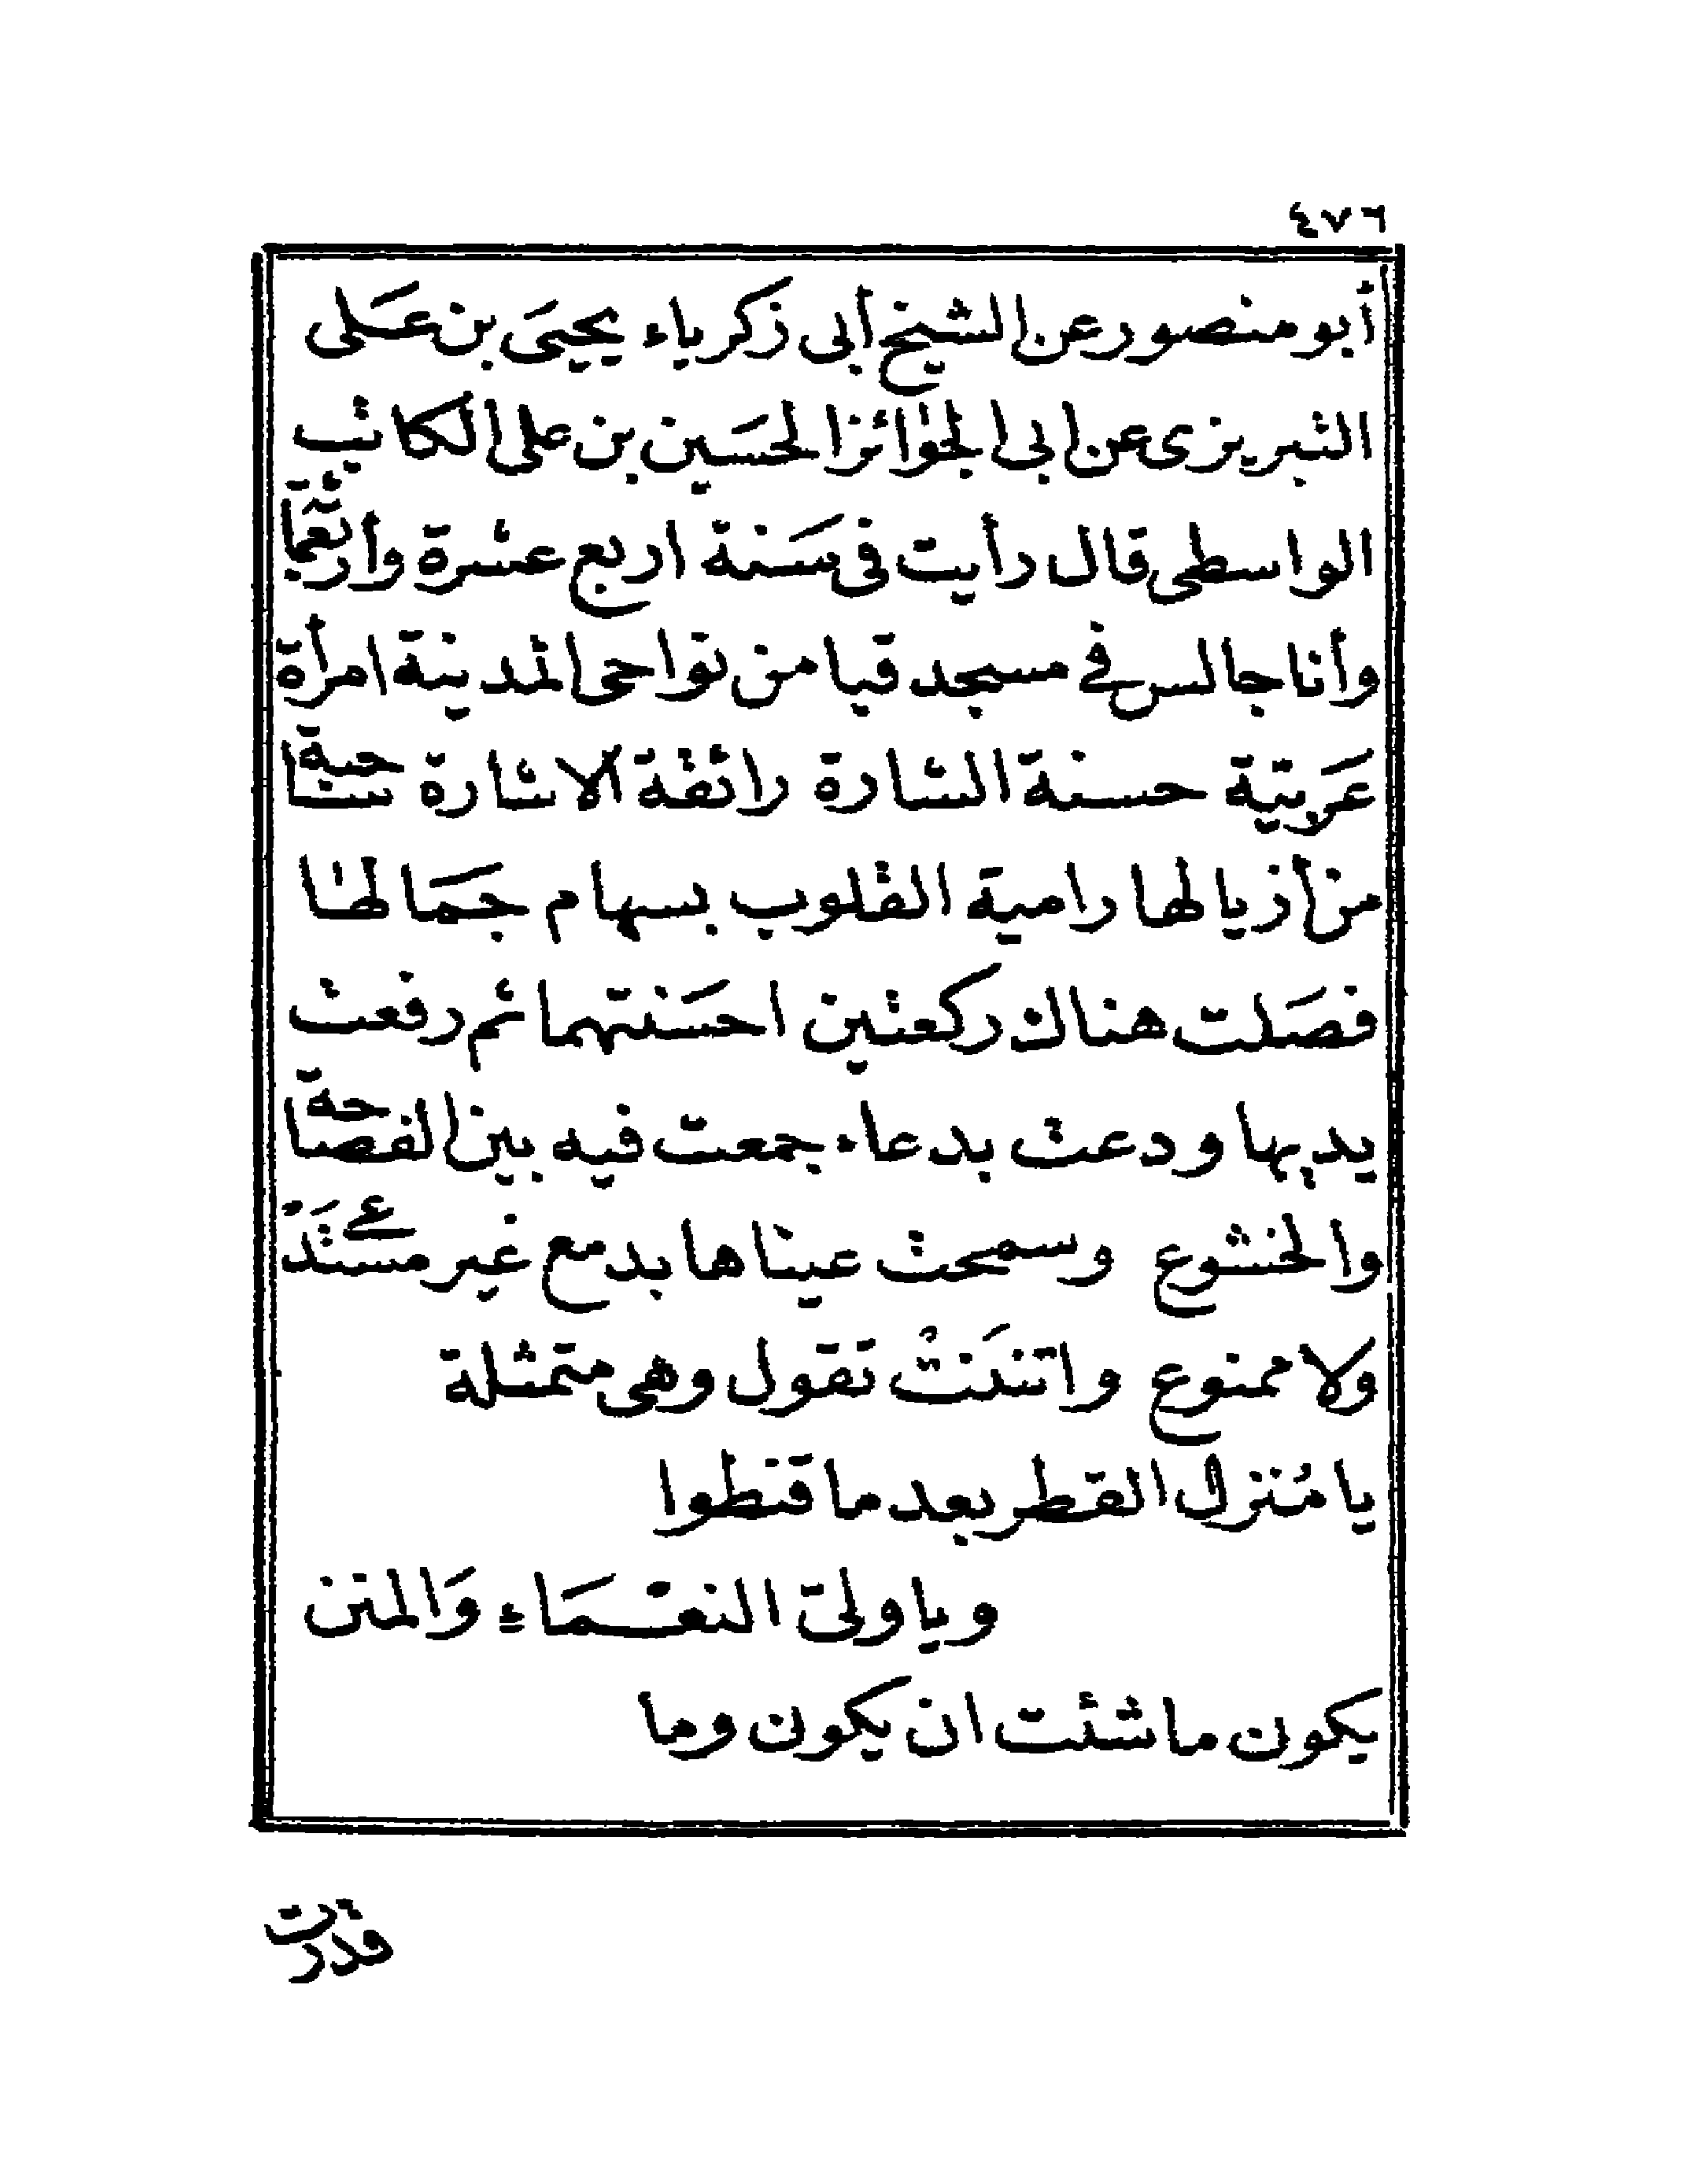 ٤٧٦
أبو منصور عن الشيخ أبى زكرياء يحيىَ بن عَلى
التبريزى عن ابى الجوائز الحسَين بن على الكاتب
الواسطى قال رأيت فى سَنة اربع عشرة وأربعمائة
وأنا جالس في مسجد قبا من نواحى المدينة امرأة
عَربيّة حسنة الشارة رائقة الاشارة ساحبة
من أذيالها رامية القلوب بسهام جمَالها
فصَلت هناك ركعتين احسَنتهما ثم رفعت
يديها ودعت بدعاء جمعت فيه بين الفصاحة
والخشوع وسمحت عيناها بدمع غير مستَدْعى
ولا ممنوع وانثنَتْ تقول وهى متمثلة
يا مُنزل القطر بعد ما قنطوا
ويا ولىّ النعْمَاءِ وَالمنن
يكون ما شئت ان يكون وما
قدرت